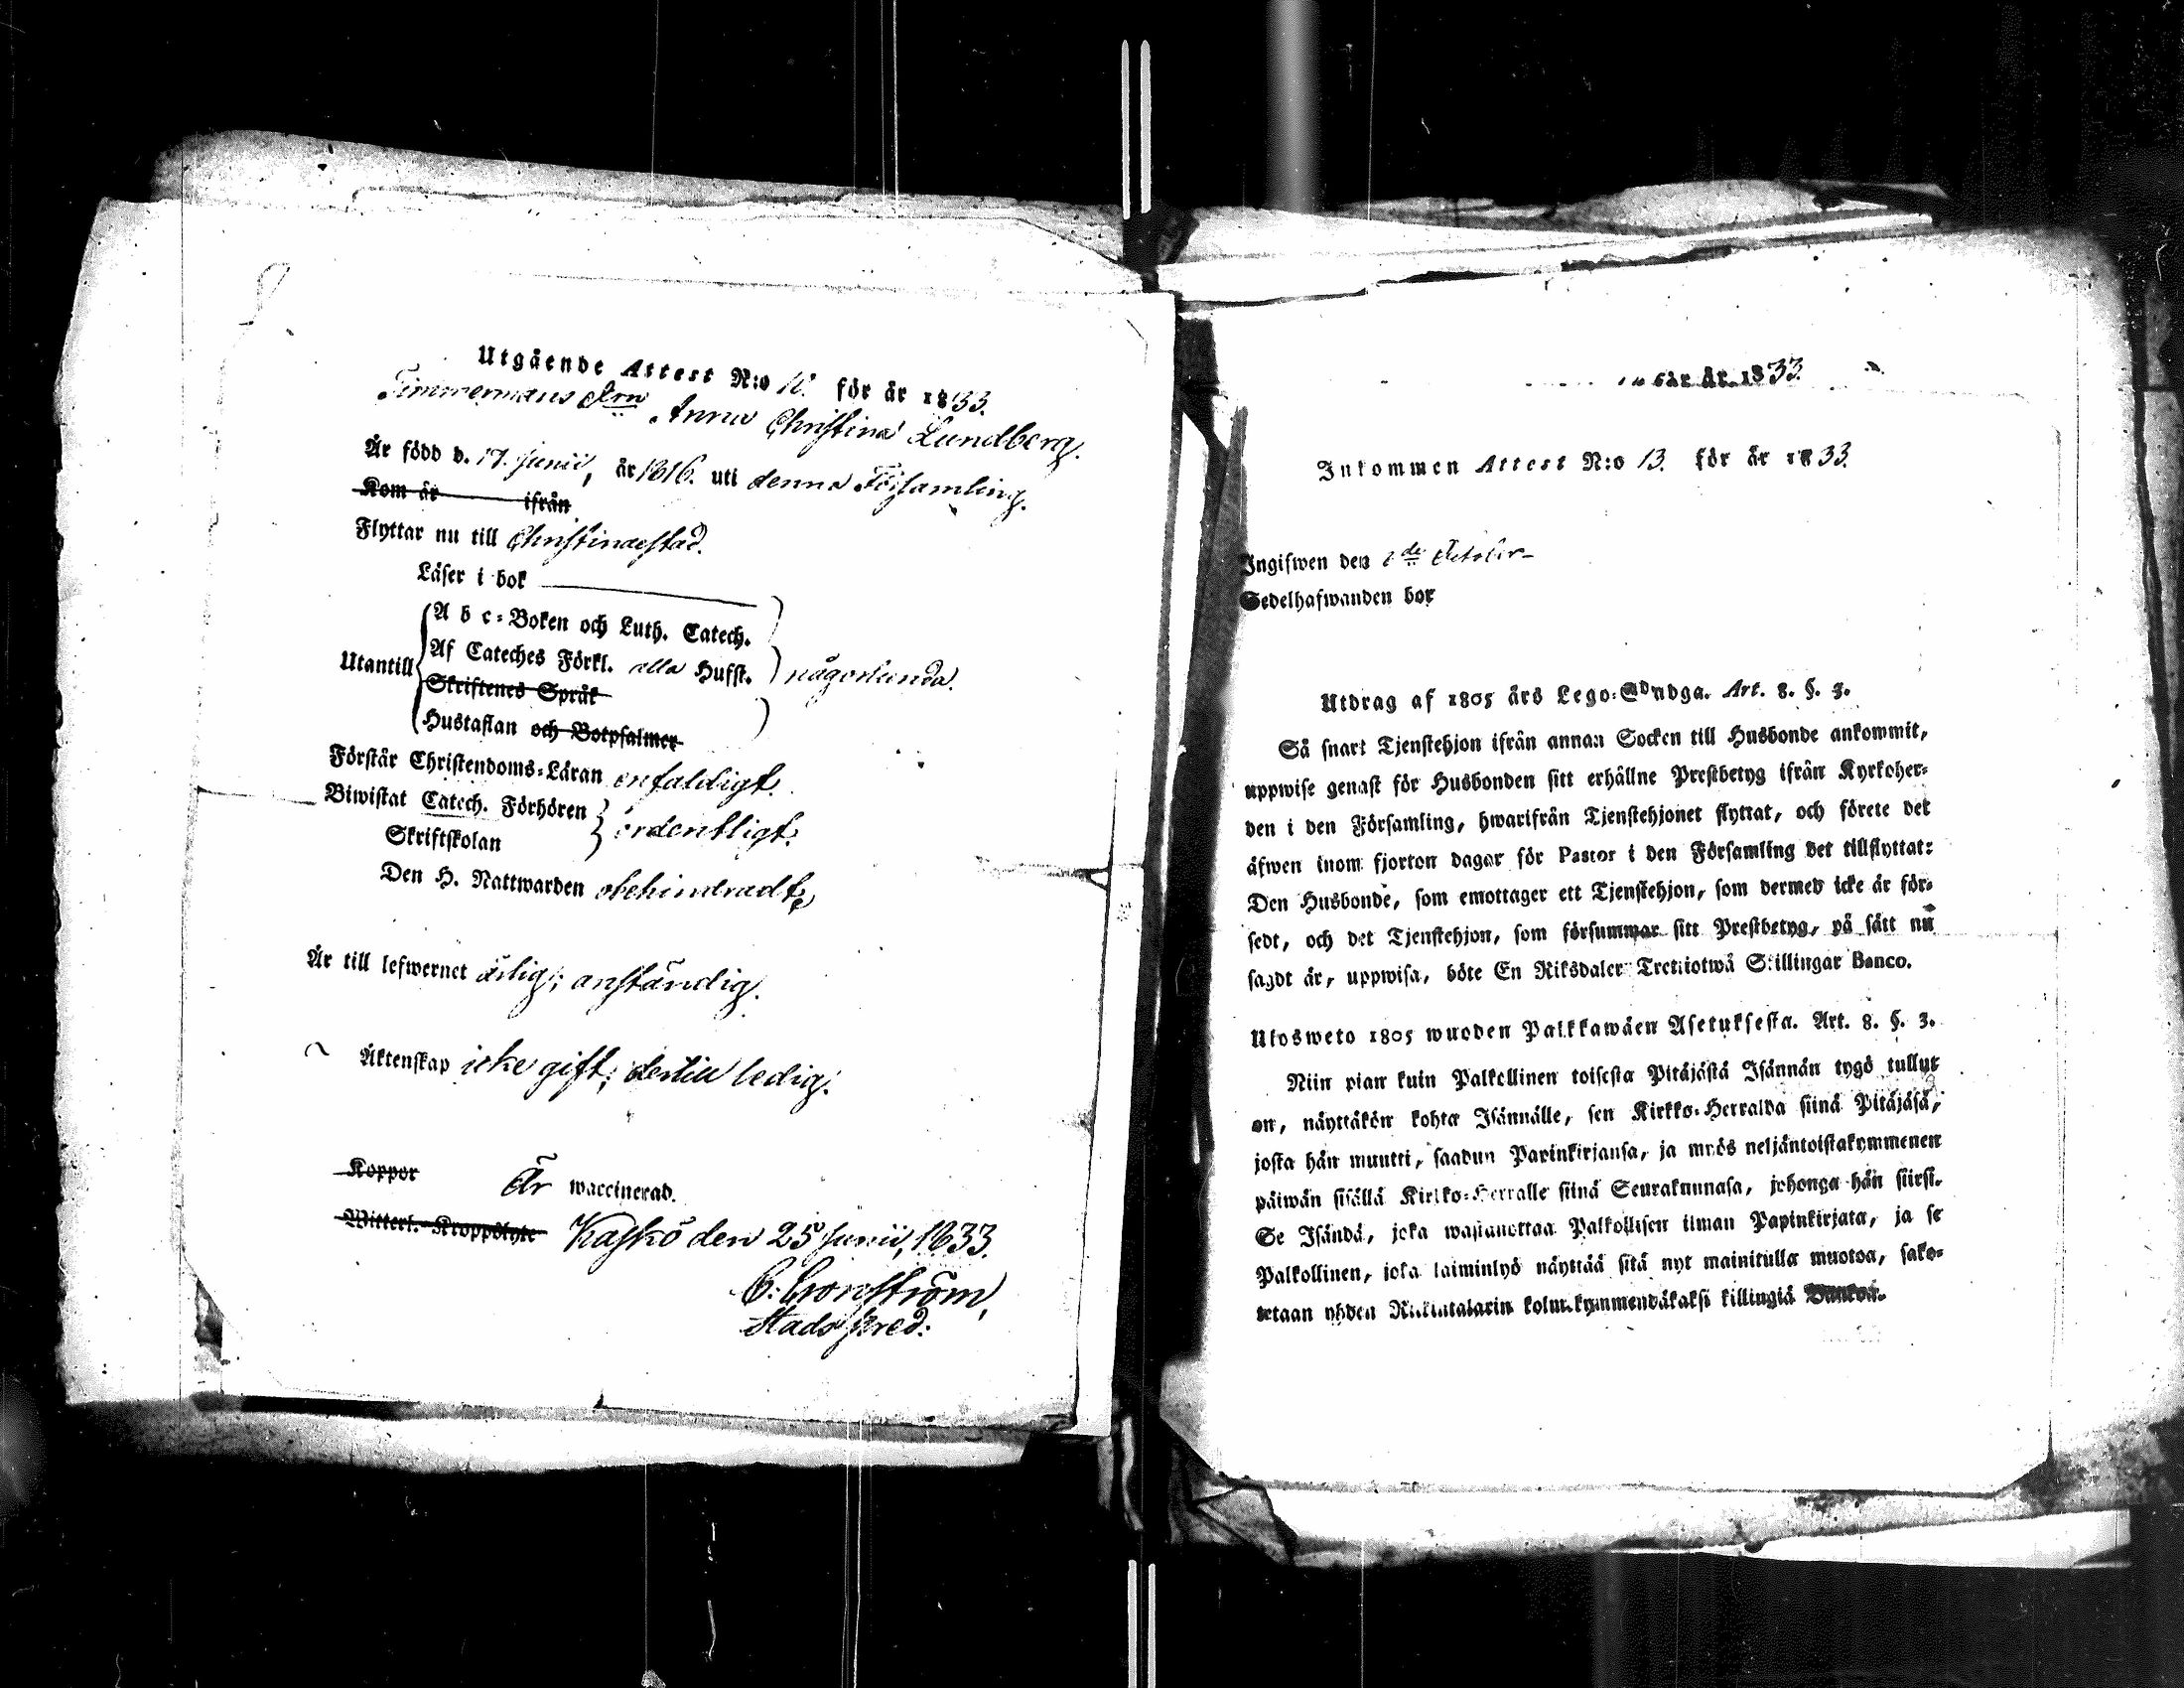 Utgående Attest N:o 10. för år 1833.
Timmermans drn Anna Christina Lundberg.
Är född d. 17. Junii, år 1816. uti denna Församling.
Kom år ifrån
Flyttar nu till Christinaestad.
Läser i bok
A b c-Boken och Luth. Catech.
Af Cateches Förkl. alla Hufst.
Utantill
någorlunda.
Skriftenes Språk
Hustaflan och Botpsalmer
Förstår Christendoms-Läran enfaldigt.
Biwistat Catech. Förhören
ordentligt.
Skriftskolan
Den H. Nattwarden obehindradt,
Är till lefwernet ärlig; anständig.
Äktenskap icke gift; dertill ledig.
Koppor Är waccinerad.
Witterl. Kroppslyte Kaskö den 25 Junii, 1833.
Stads pred:
för år 1833.
Inkommen Attest N:o 13. för år 1833.
Ingifwen den October
Sedelhafwanden bor
Utdrag af 1805 års Lego-Stadga. Art. 8. §. 3.
Så snart Tjenstehjon ifrån annan Socken till Husbonde ankommit,
uppwise genast för Husbonden sitt erhållne Prestbetyg ifrån Kyrkoher-
den i den Församling, hwarifrån Tjenstehjonet flyttat, och förete det
äfwen inom fjorton dagar för Pastor i den Församling det tillflyttat:
Den Husbonde, som emottager ett Tjenstehjon, som dermed icke är för-
sedt, och det Tjenstehjon, som försummar sitt Prestbetyg, på sätt nu
sagdt är, uppwisa, böte En Riksdaler Trettiotwå Skillingar Banco.
Ulosweto 1805 wuoden Palkkawäen Asetuksesta. Art. 8. §. 3.
Niin pian kuin Palkollinen toisesta Pitäjästä Isännän tygö tullut
on, näyttäkön kohta Isännälle, sen Kirkko-Herralda siinä Pitäjäsä,
josta hän muutti, saadun Papinkirjansa, ja myös neljäntoistakymmenen
päiwän sisällä Kirkko-Herralle siinä Seurakunnasa, johonga hän siirsi.
Se Isändä, joka wastanottaa Palkollisen ilman Papinkirjata, ja se
Palkollinen, joka laiminlyö näyttää sitä nyt mainitulla muotoa, sako-
tetaan yhden Riikintalarin kolmekymmendäkaksi killingiä Bankoa.